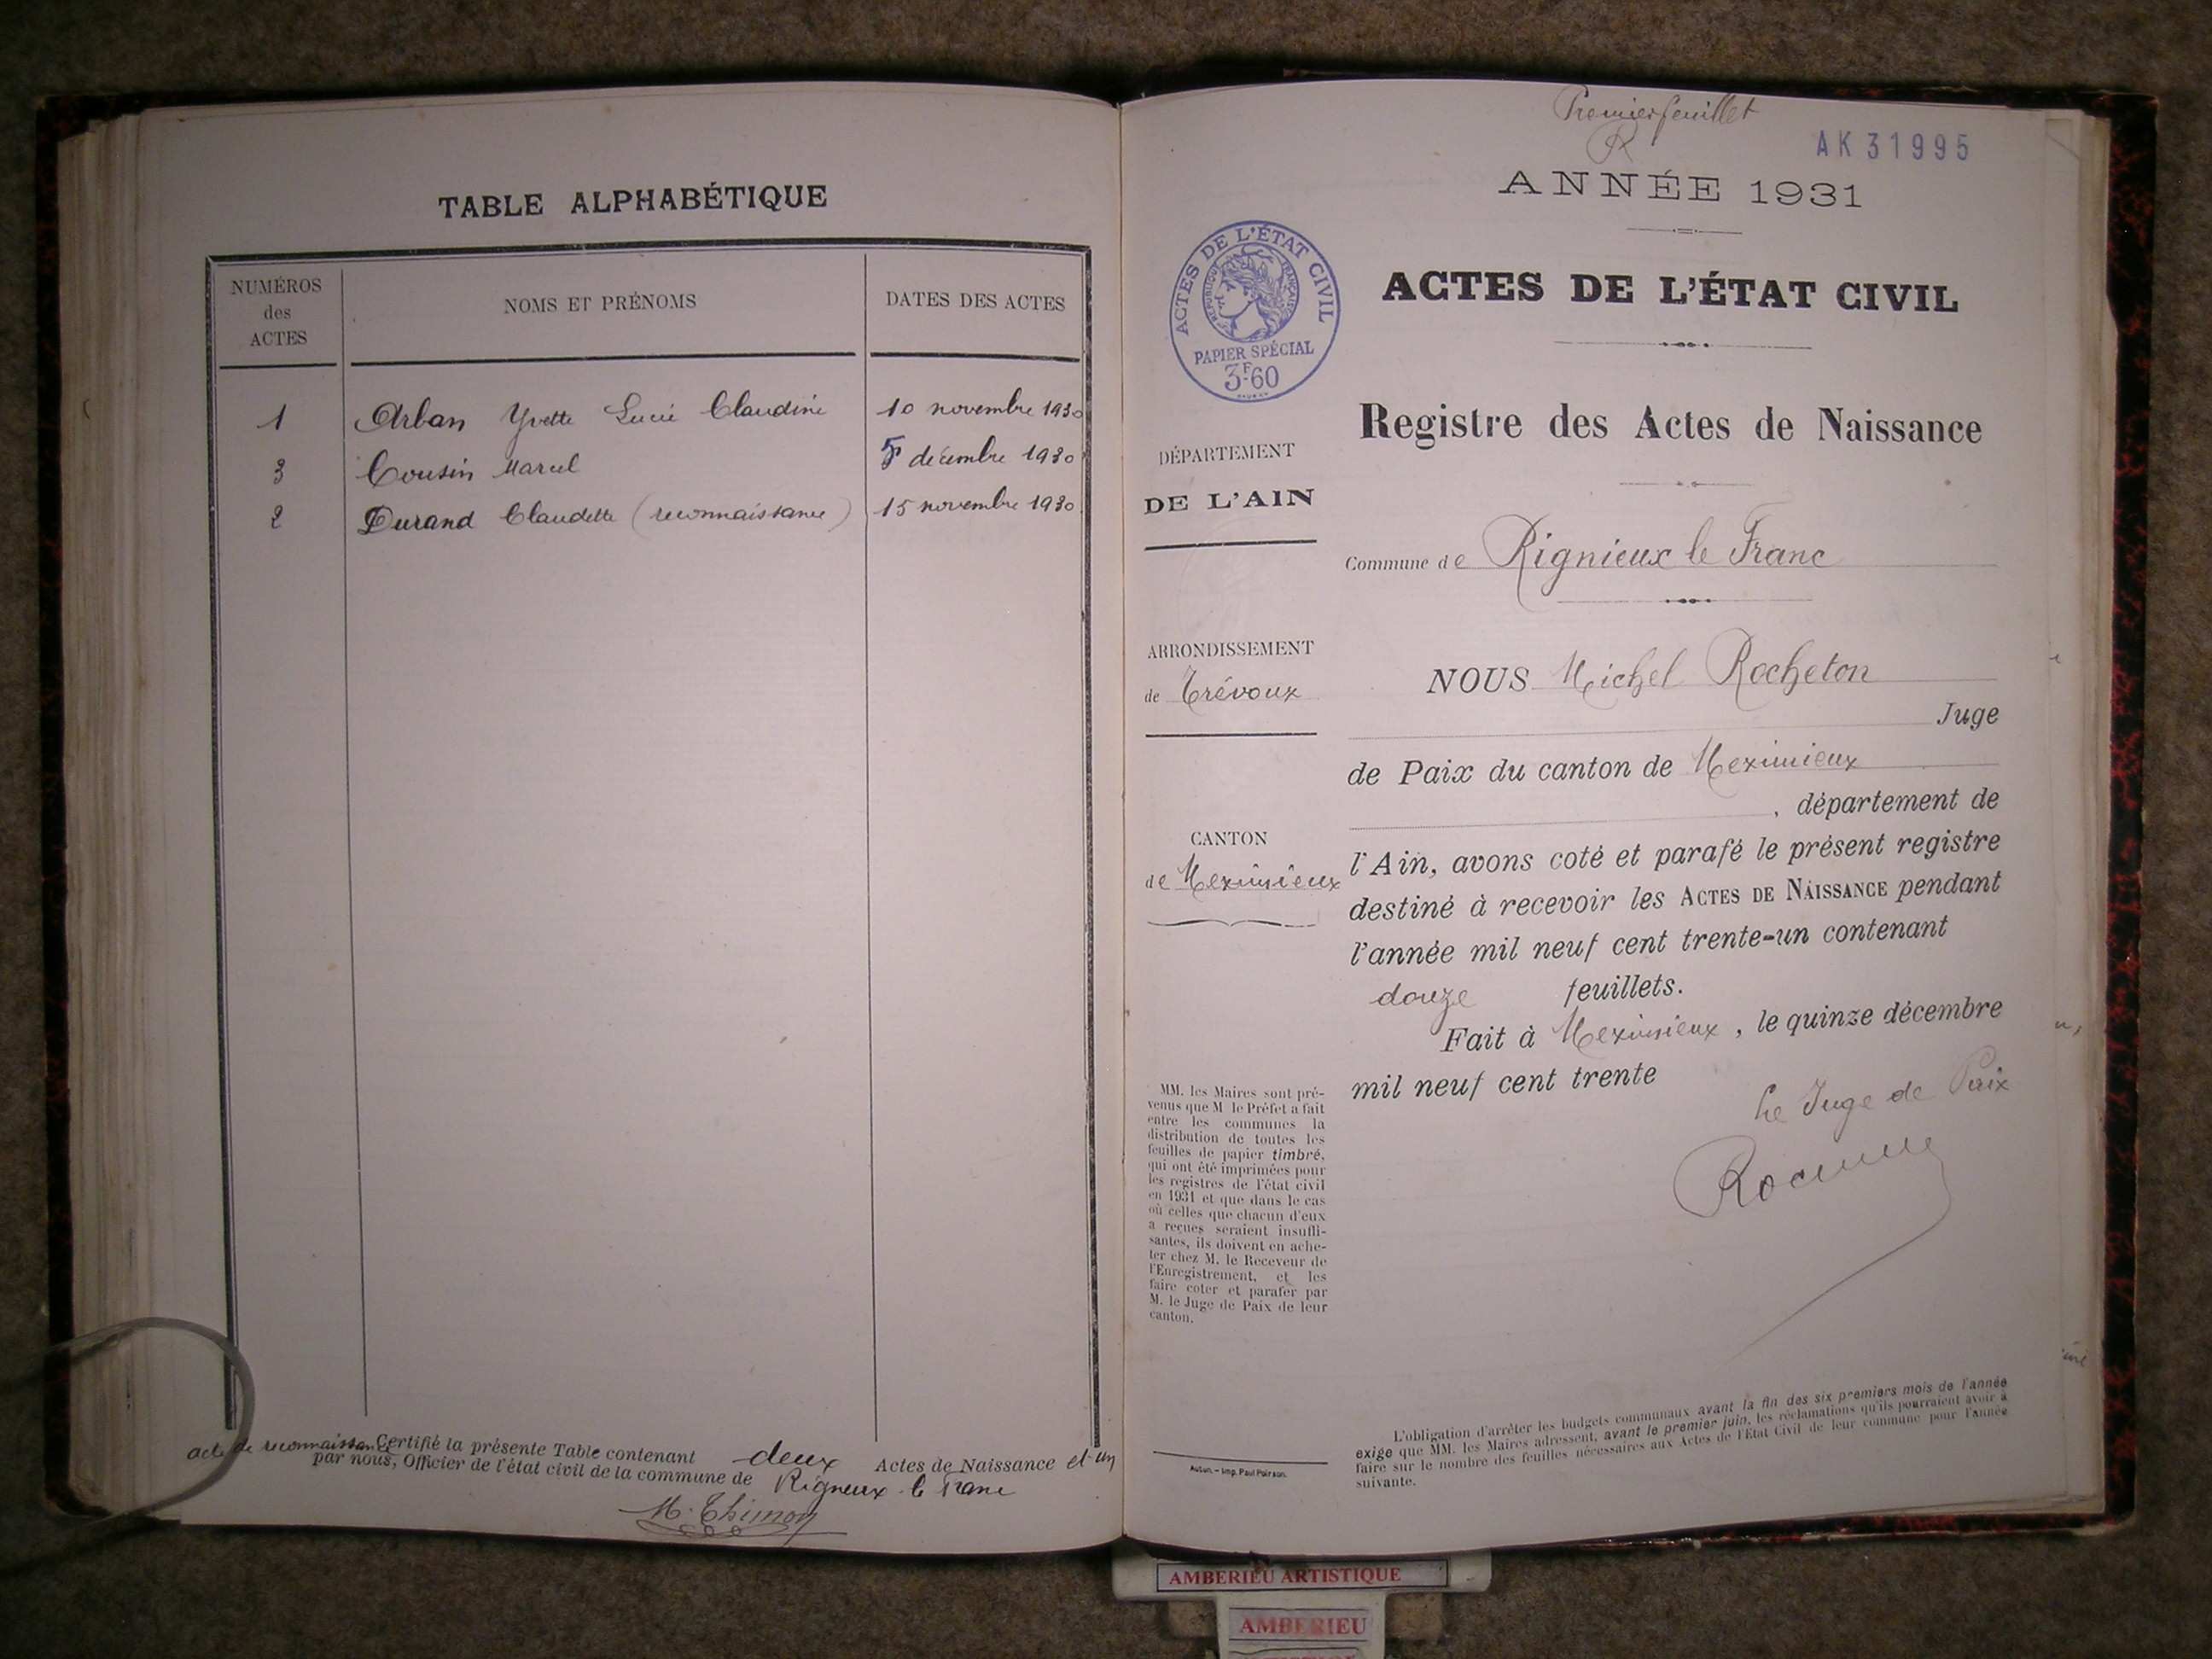 TABLE ALPHABÉTIQUE
NUMÉROS
des
ACTES
NOMS ET PRÉNOMS
DATES DES ACTES
1 Arban Yvette Lucie Claudine 10 novembre 1930
3 Cousin Marcel 5 décembre 1930
2 Durand Claudette (reconnaissance) 15 novembre 1930
Certifié la présente Table contenant deux Actes de Naissance et un
acte de reconnaissance
par nous, Officier de l'état civil de la commune de Rigneux-le Franc
M. Thimon
Premier feuillet
R
AK 31995
ANNÉE 1931
ACTES DE L'ÉTAT CIVIL
RÉPUBLIQUE FRANÇAISE
PAPIER SPÉCIAL
3F60
ACTES DE L'ÉTAT CIVIL
Registre des Actes de Naissance
DÉPARTEMENT
DE L'AIN
Commune de Rignieux le Franc
ARRONDISSEMENT
de Trévoux
NOUS Michel Rocheton
Juge
de Paix du canton de Meximieux
, département de
CANTON
de Meximieux
l'Ain, avons coté et parafé le présent registre
destiné à recevoir les ACTES DE NAISSANCE pendant
l'année mil neuf cent trente-un contenant
douze feuillets.
Fait à Meximieux, le quinze décembre
mil neuf cent trente
Le Juge de Paix
MM. les Maires sont pré-
venus que M. le Préfet a fait
entre les communes la
distribution de toutes les
feuilles de papier timbré,
qui ont été imprimées pour
les registres de l'état civil
en 1931 et que dans le cas
où celles que chacun d'eux
a reçues seraient insuffi-
santes, ils doivent en ache-
ter chez M. le Receveur de
l'Enregistrement, et les
faire coter et parafer par
M. le Juge de Paix de leur
canton.
Autun. – Imp. Paul Poirson.
L'obligation d'arrêter les budgets communaux avant la fin des six premiers mois de l'année
exige que MM. les Maires adressent, avant le premier juin, les réclamations qu'ils pourraient avoir à
faire sur le nombre des feuilles nécessaires aux Actes de l'Etat Civil de leur commune pour l'année
suivante.
AMBERIEU ARTISTIQUE
AMBERIEU